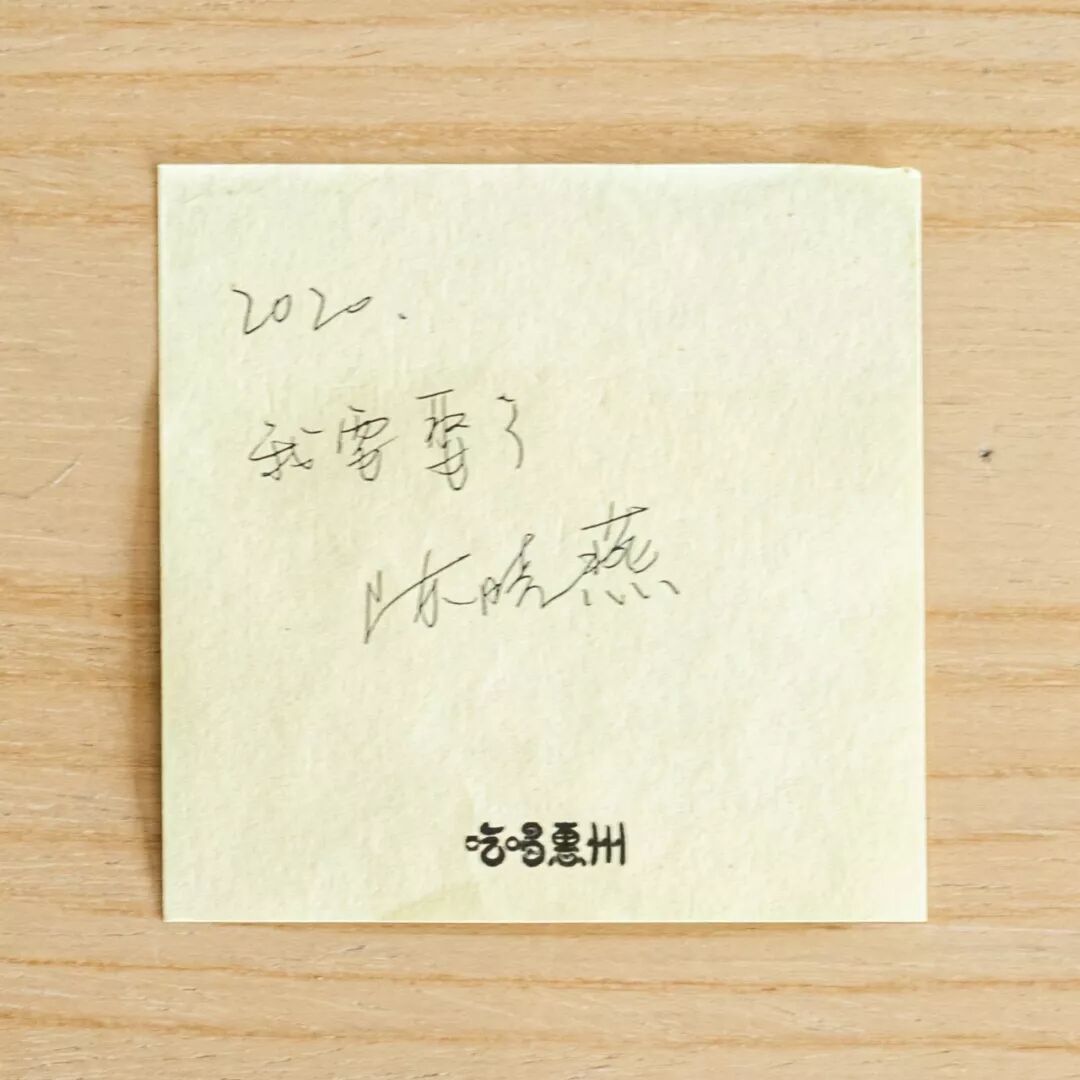 2020.
我需娶了
陈晓燕
吃喝惠州